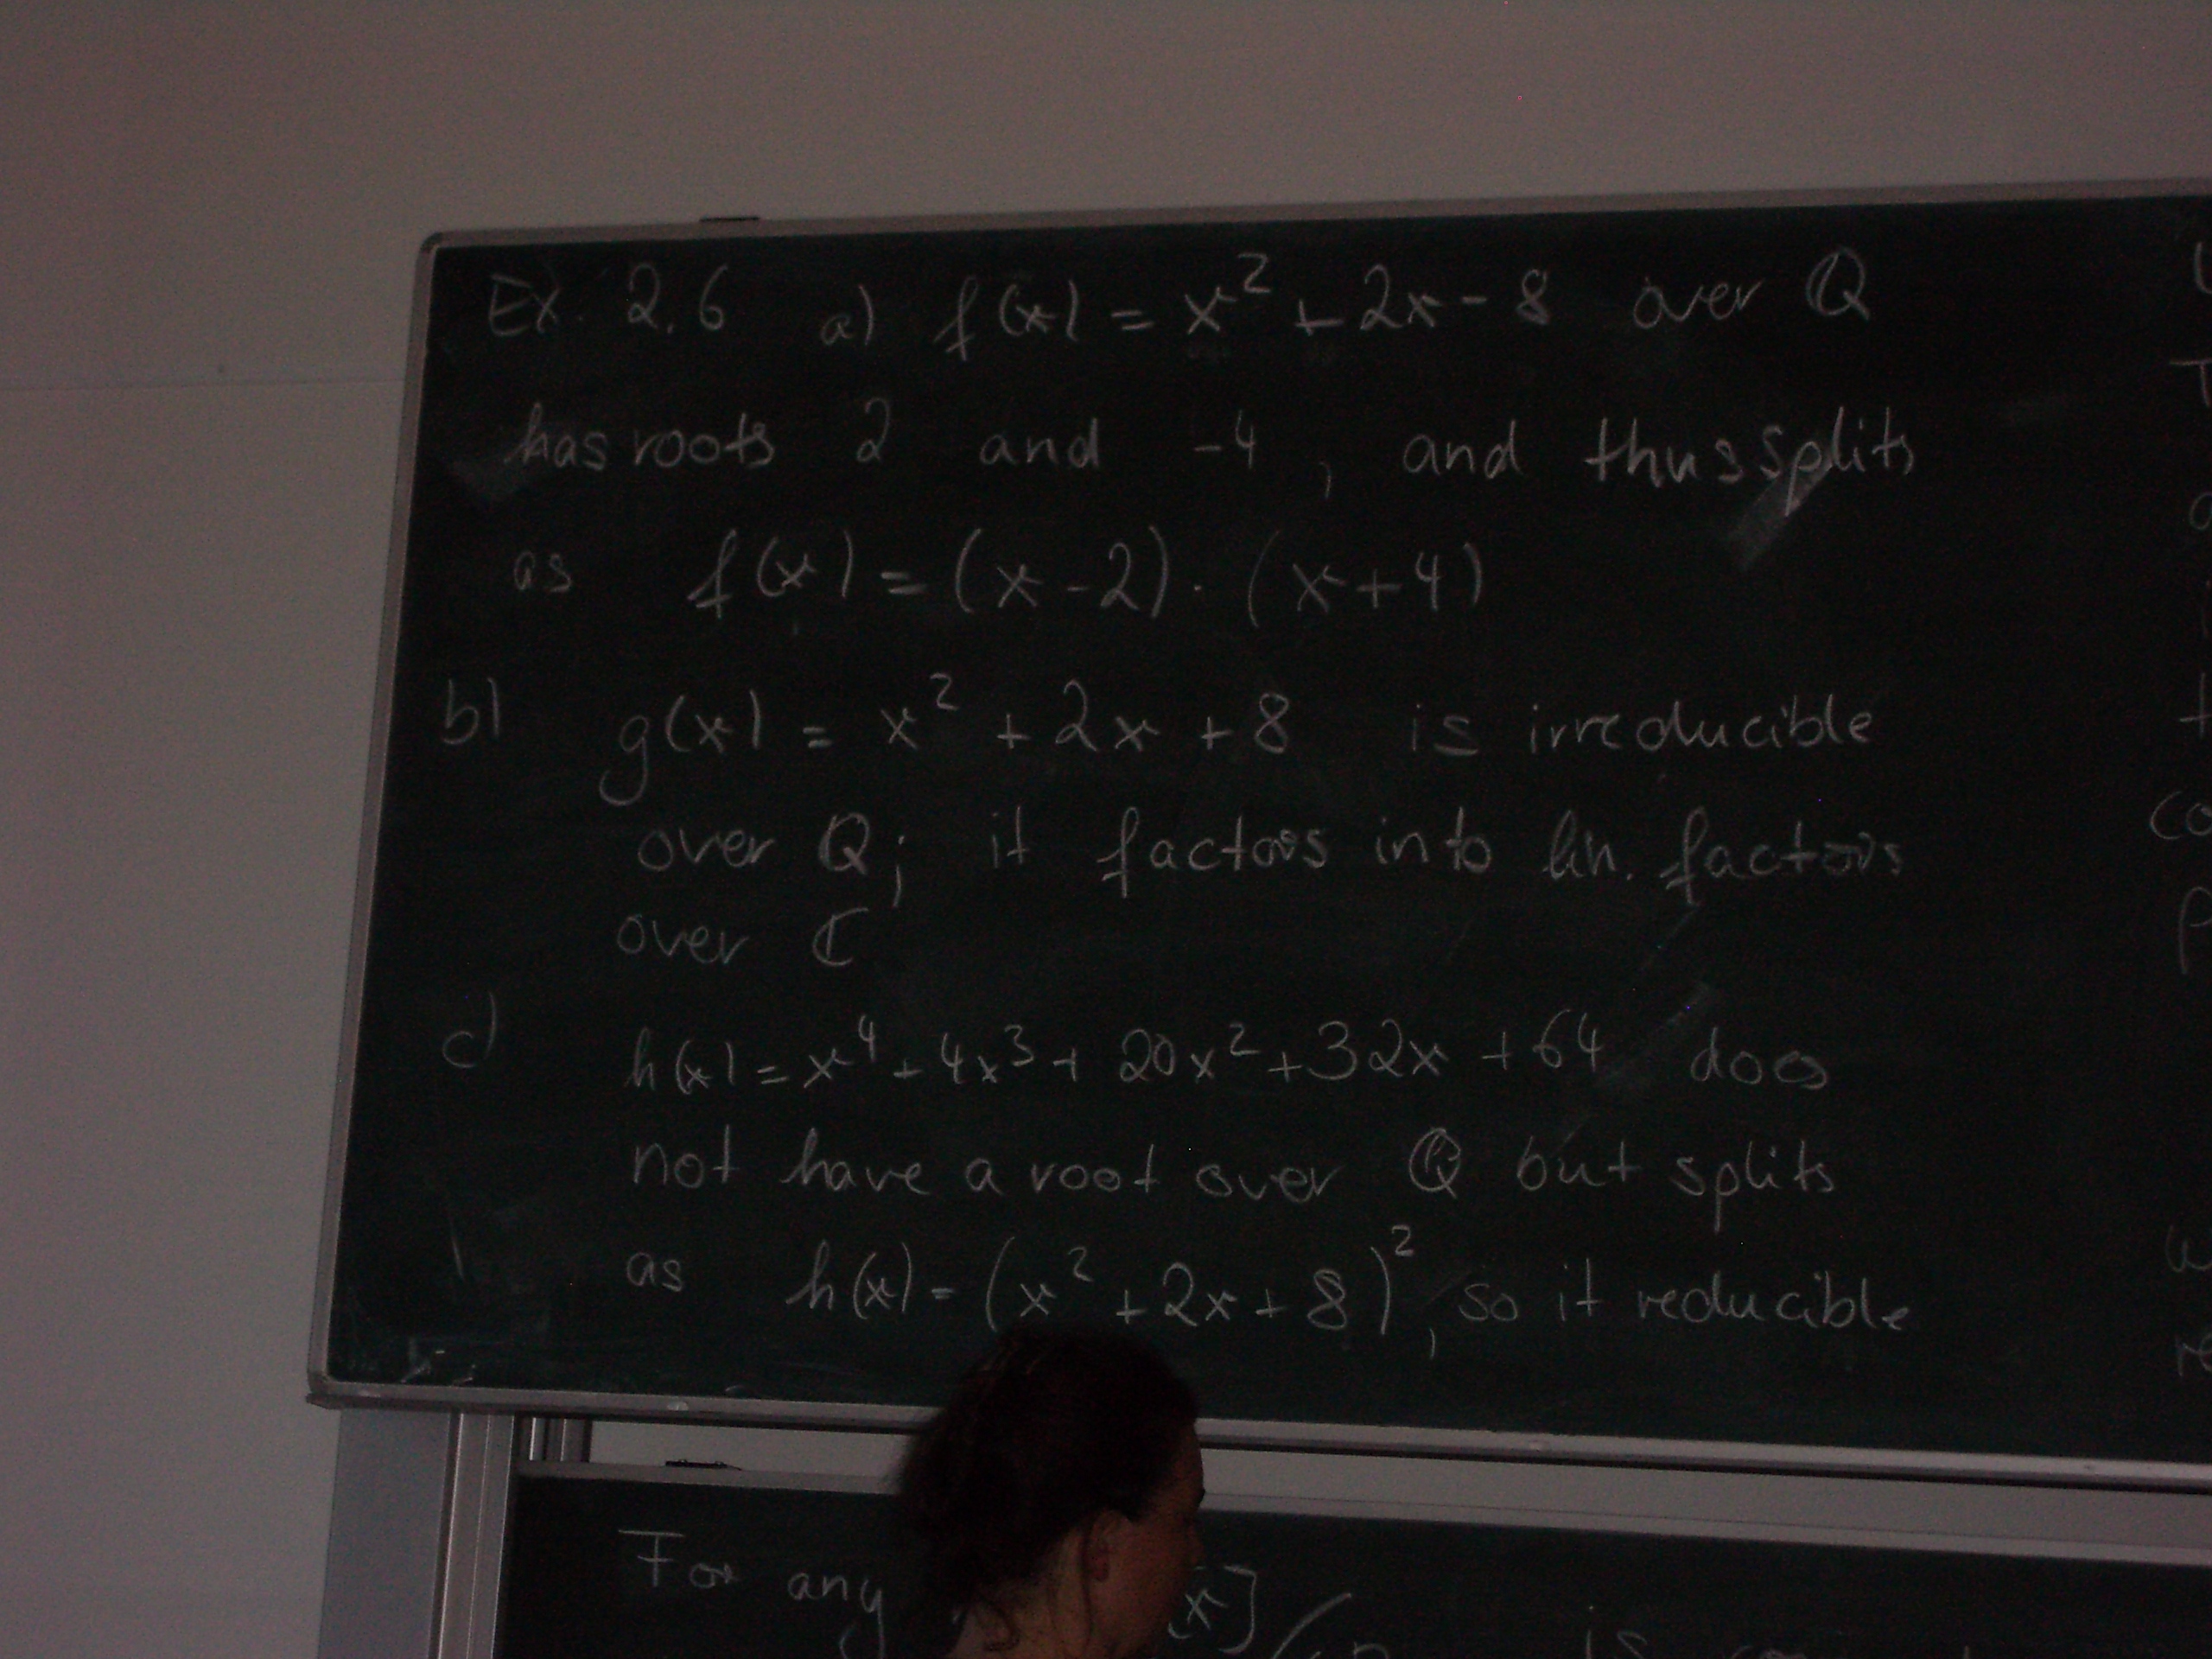 Ex. 2.6 a) f(x) = x² + 2x - 8 over ℚ
has roots 2 and -4, and thus splits
as f(x) = (x - 2) · (x + 4)
b) g(x) = x² + 2x + 8 is irreducible
over ℚ; it factors into lin. factors
over ℂ
c) h(x) = x⁴ + 4x³ + 20x² + 32x + 64 does
not have a root over ℚ but splits
as h(x) = (x² + 2x + 8)², so it reducible
For any x] / is